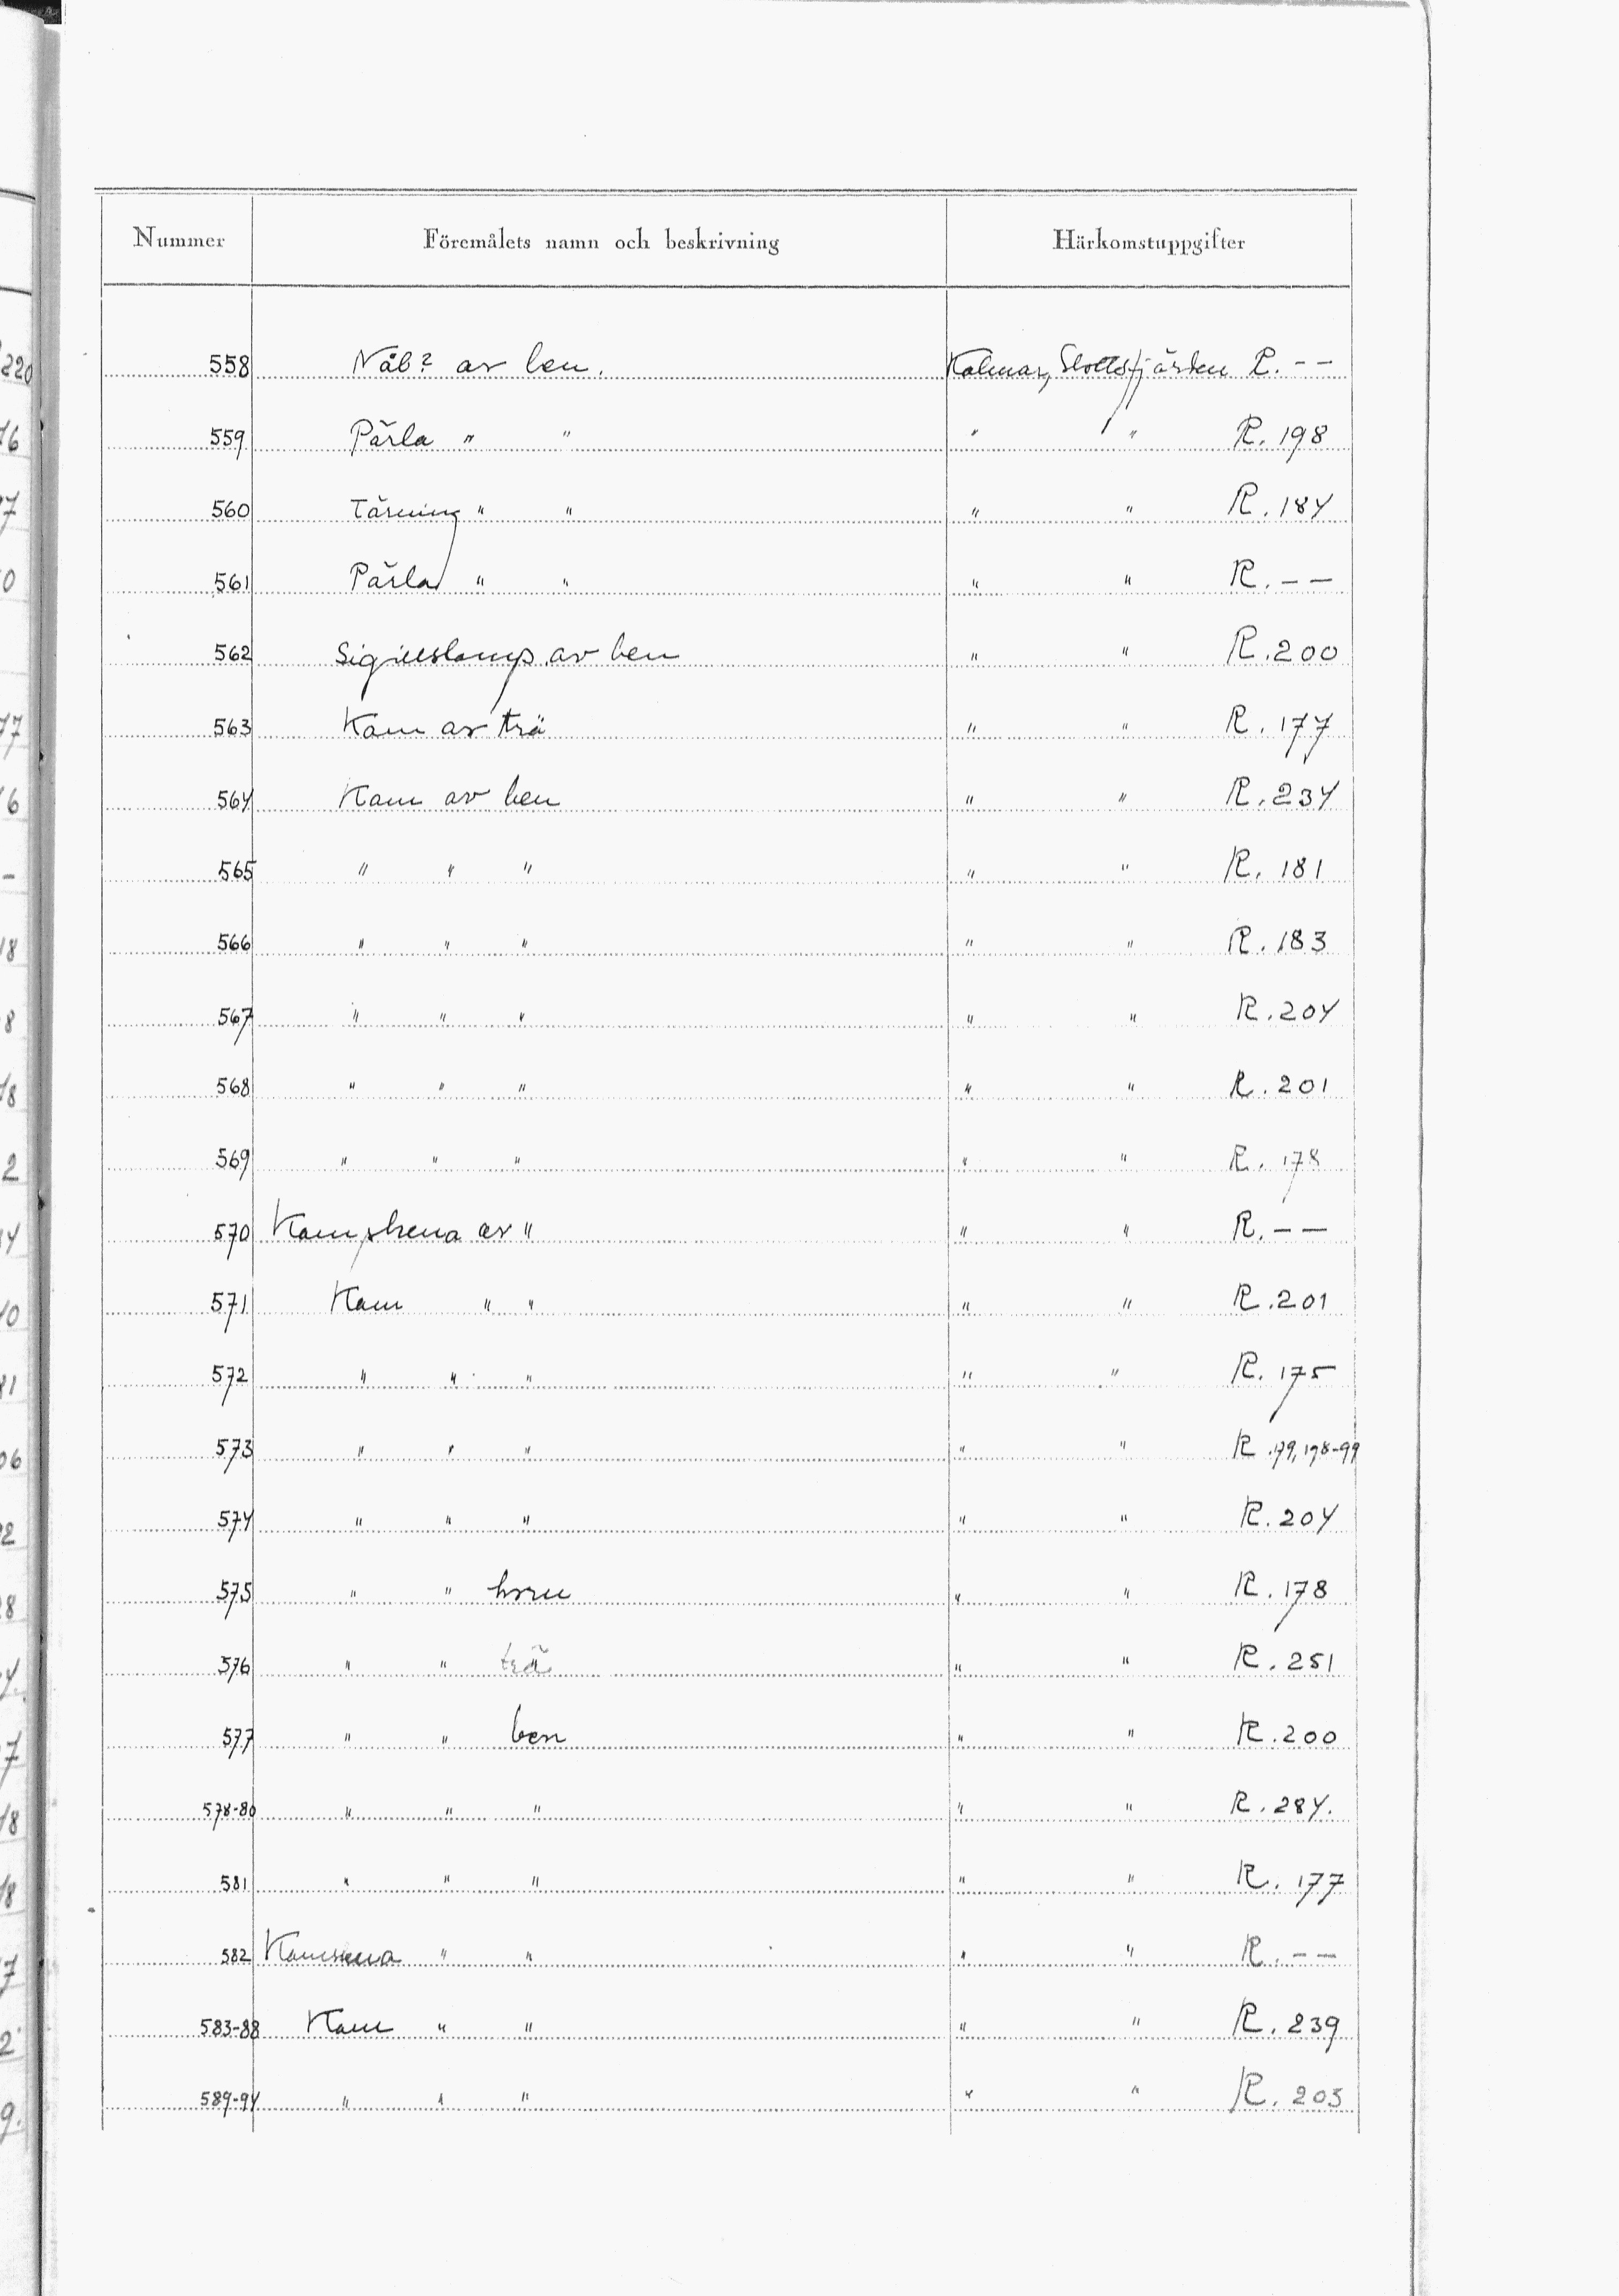 Nummer Föremålets namn och beskrivning Härkomstuppgifter
558 Nål? av ben. Kalmar, Slottsfjärden R. --
559 Pärla " " " " R. 198
560 Tärning " " " " R. 184
561 Pärla " " " " R. --
562 Sigillstamp av ben " " R. 200
563 Kam av trä " " R. 177
564 Kam av ben " " R. 234
565 " " " " " R. 181
566 " " " " " R. 183
567 " " " " " R. 204
568 " " " " " R. 201
569 " " " " " R. 178
570 Kamskena av " " " R. --
571 Kam " " " " R. 201
572 " " " " " R. 175
573 " " " " " R. 179, 198-99
574 " " " " " R. 204
575 " " horn " " R. 178
576 " " trä " " R. 251
577 " " ben " " R. 200
578-80 " " " " " R. 284.
581 " " " " " R. 177
582 Kamskena " " " " R. --
583-88 Kam " " " " R. 239
589-94 " " " " " R. 203